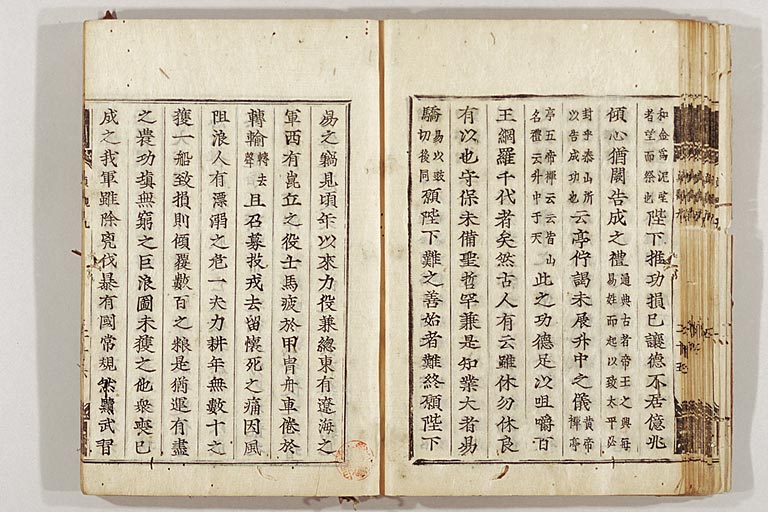 陛下推功損己讓德不居億兆
傾心猶闕告成之禮通典古者帝王之興每易姓而起以致太平必
封乎泰山所以告成功也云亭佇謁未展升中之儀黄帝禪亭
亭五帝禪云云皆山名禮云升中于天此之功德足以咀嚼百
王網羅千代者矣然古人有云雖休勿休良
有以也守保未備聖哲罕兼是知業大者易
驕易以豉切後同願陛下難之善始者難終願陛下
易之竊見頃年以來力役兼總東有遼海之
軍西有崑丘之役士馬疲於甲冑舟車倦於
轉輸轉去聲且召募投戎去留懷死之痛因風
阻浪人有漂溺之危一夫力耕年無數十之
獲一船致損則傾覆數百之粮是猶運有盡
之農功填無窮之巨浪圖未獲之他衆喪已
成之我軍雖除兇伐暴有國常規然黷武習